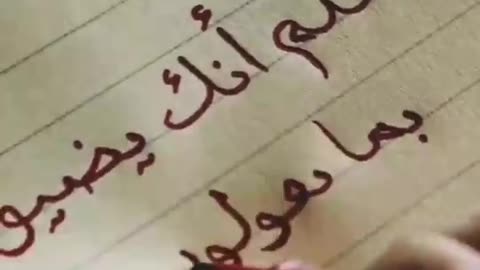 أنك يضيق
بما يقولو